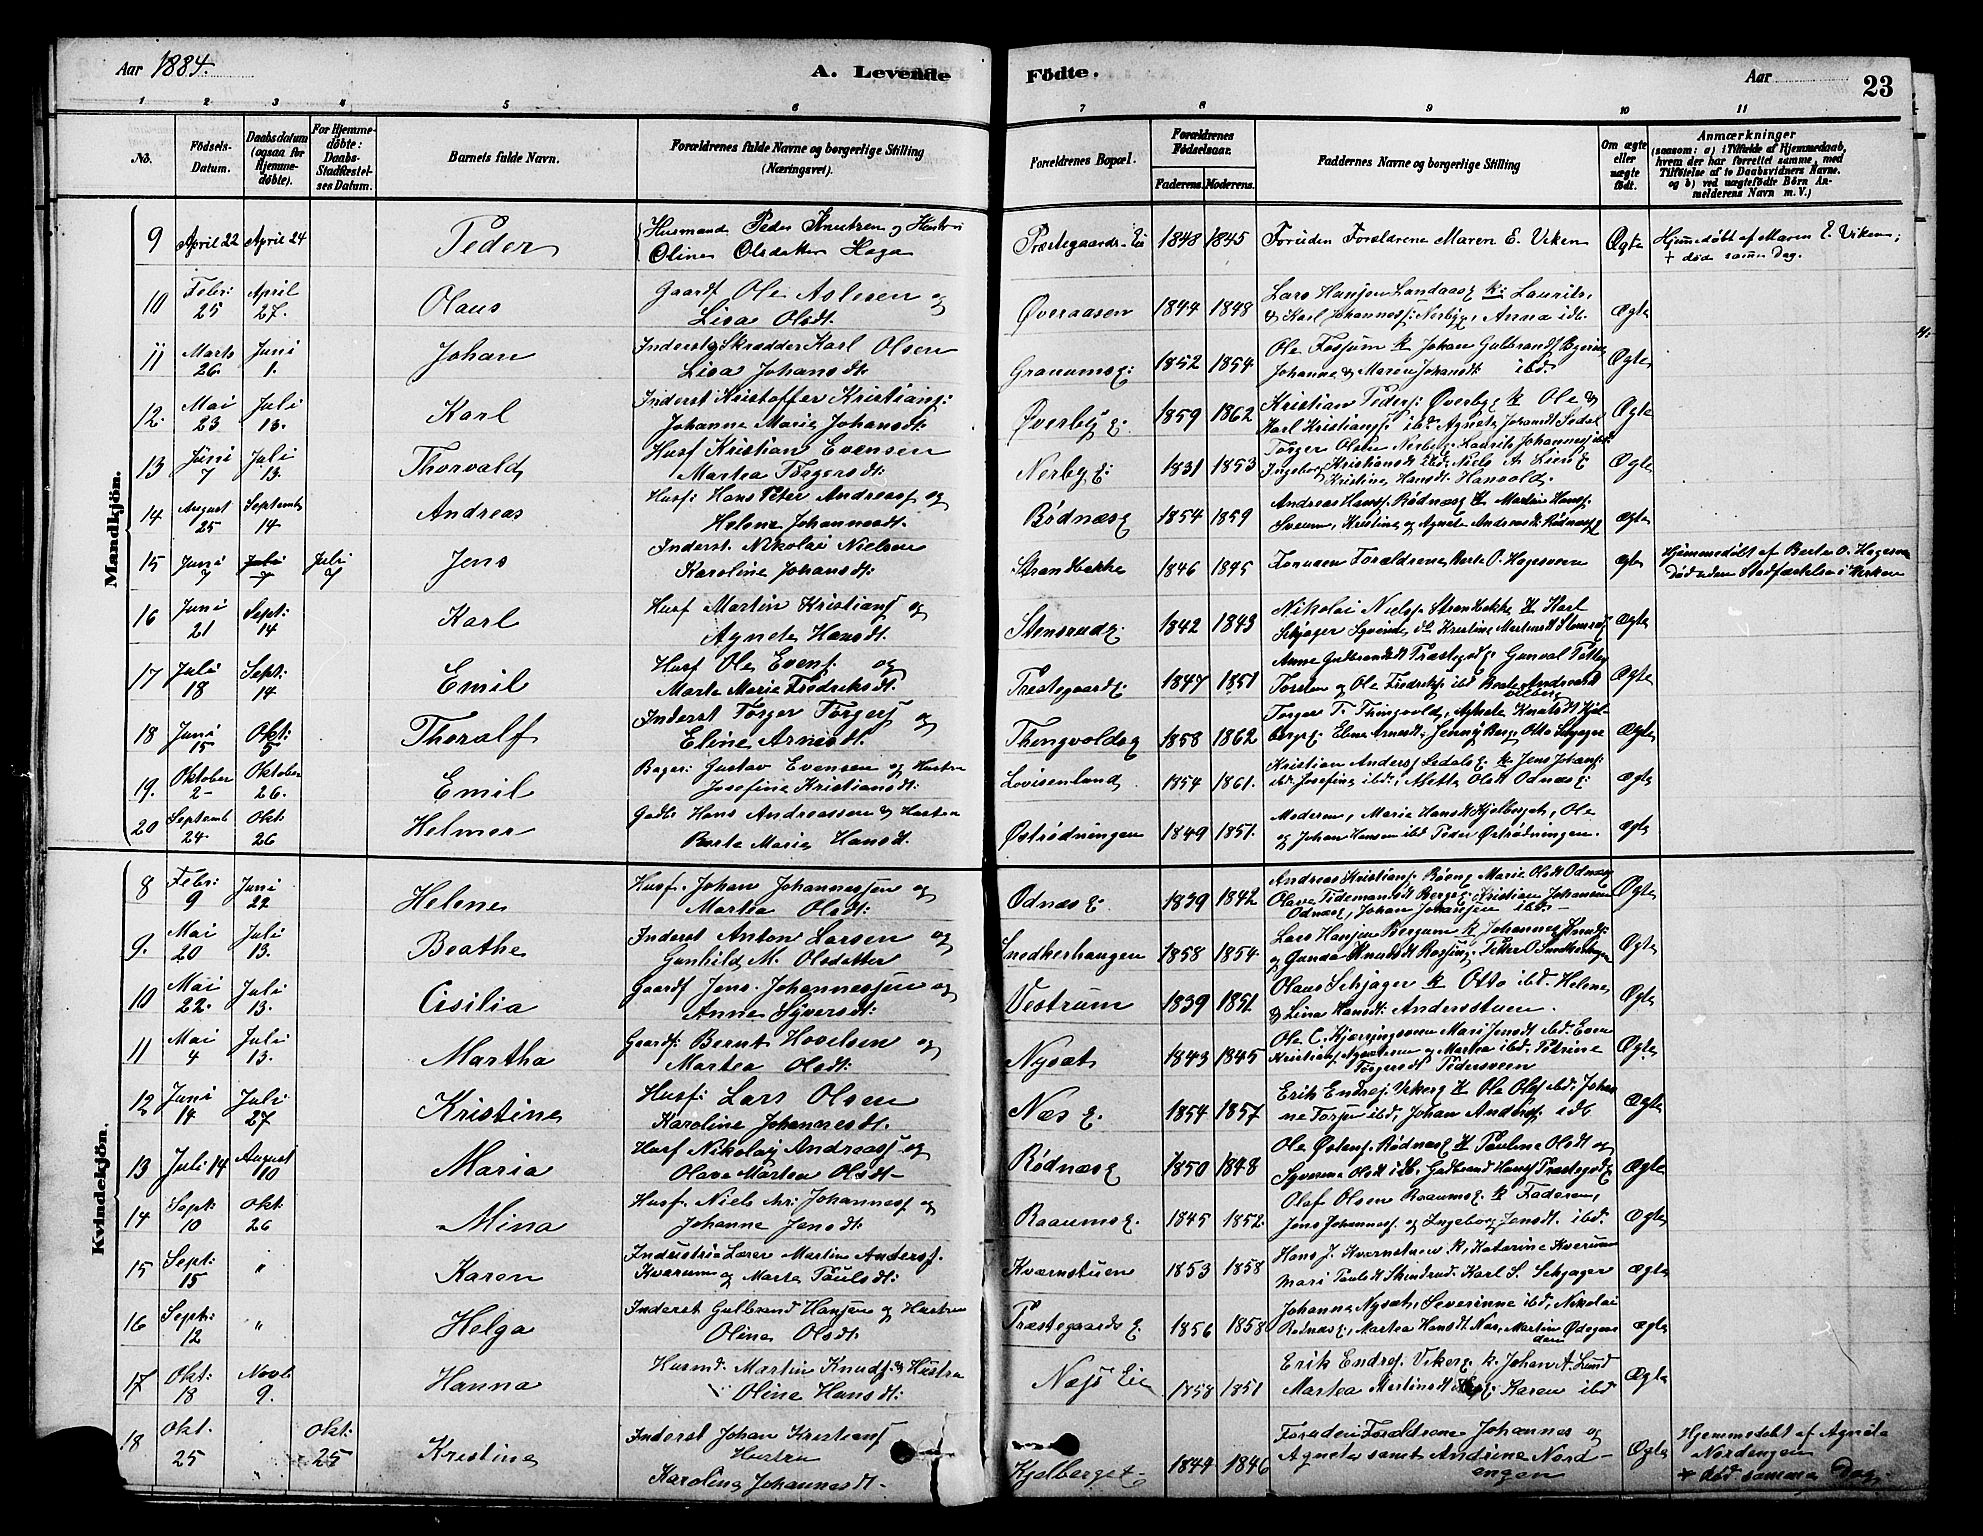 Aar 1884.
A. Levende Födte.
Aar
23
1 2 3 4 5 6 7 8 9 10 11
No.
Födsels-
Datum.
Daabsdatum
(ogsaa for
Hjemme-
döbte).
For Hjemme-
döbte:
Daabs-
Stadfæstel-
ses Datum.
Barnets fulde Navn.
Forældrenes fulde Navne og borgerlige Stilling
(Næringsvei).
Forældrenes Bopæl.
Forældrenes
Födselsaar.
Faderens. Moderens.
Faddernes Navne og borgerlige Stilling
Om ægte
eller
uægte
födt.
Anmærkninger
(saasom: a) i Tilfælde af Hjemmedaab,
hvem der har forrettet samme, med
Tilföielse af to Daabsvidners Navne.
og b) ved uægtefödte Börn An-
melderens Navn m. V.)
Mandkjön.
9 April 22 April 24 Peder Husmand Peder Knutsen og Hustru
Oline Olsdatter Haga Præstegaards Ei 1848 1845 Foruden Forældrene Maren E. Viken Ægte Hjemmedøbt af Maren E. Viken;
+ død samme Dag.
10 Febr: 25 April 27. Olaus Gaardf Ole Aslesen og
Lisa Olsdt. Øveraasen 1844 1848 Lars Hansen Landaas k: Laurits,
& Karl Johannesf: Nerby, Anna ibd. Ægte
11 Marts 26. Juni 1. Johan Inderst Skrædder Karl Olsen
Lisa Johansdt. Granumse: 1852 1854 Ole Fossum k Johan Gulbrands
Johanne & Maren Johansdt ibd. Ægte
12. Mai 23 Juli 13. Karl Inderst Kristoffer Kristiansf:
Johanne Marie Johansdt: Øverby e: 1859 1862 Kristian Pedersf: Øverbye k Ole &
Karl Kristiansf ibd. Agnete Ægte
13 Juni 7 Juli 13. Thorvald Husf Kristian Evensen
Martea Torgersdt: Nerby e: 1831 1853 Torger Olsen Nerby, Laurits Johannesf
Ingeborg Kristiansdt ibd, Niels A. Lien &
Kristine Hansdt. Hanvold. Ægte
14 August 25 Septemb 14 Andreas Husf: Hans Peter Andreasf og
Helene Johannesdt. Rødnæse 1854 1859 Andreas Hansf. Rødnæse k Martin Hansf:
Sveum, Kristine og Agnete Andreasdt Rødnæse Ægte
15 Juni 7 Juli 7 Juli 7 Jens Inderst. Nikolai Nielsen
Karoline Johansdt: Strandbakke 1846 1845 Foruden Forældrene Berte O. Hagesveen Ægte Hjemmedøbt af Berte O. Hagesveen
Død uden Stadfæstelse i Kirken
16 Juni 21 Sept: 14 Karl Husf Martin Kristiansf og
Agnete Hansdt. Stensrude: 1842 1843 Nikolai Nielsf. Strandbakke k Karl
Schjager Syverine do Kristine Martinsdt Ægte
17 Juli 18 Sept: 14 Emil Husf Ole Evensf: og
Marte Marie Fredriksdt. Præstegaarde: 1847 1851 Anne Gulbrandsdt Præstegde: Gunval
Torsten og Ole Fredriksf ibd Beate Andreasdt Ægte
18 Juni 15 Okt: 5 Thoralf Inderst Torger Torgersf og
Eline Arnesdt. Thingvolds e 1858 1862 Torger T. Thingvold, Agnete Knutsdt Kjel-
berge: Eline Arnesdt: Jenny Berg, Otto Schjager Ægte
19. Oktober 2 Oktober 26. Emil Bager: Gustav Evensen og Hustru
Josefine Kristiansdt: Lovisenlund 1854 1861. Kristian Andersf Sedals e k Jens Johansf:
ibd. Josefine ibd: Aletta Olsdt Odnæs e: Ægte
20 Septemb 24. Okt: 26 Helmer Gadb Hans Andreassen & Hustru
Berte Marie Hansdt. Østrødningen 1849 1851. Moderen, Marie Hansdt Kjelberget, Ole
og Johan Hansen ibd Peder Østrødningen. Ægte
Kvindekjön.
8 Febr: 9 Juni 22 Helene Husf. Johan Johannessen og
Martea Olsdt: Odnæs e: 1839 1842 Andreas Kristiansf: Marie Olsdt Odnæs
Olava Tidemandsdt Berge Kristian Johansen
Odnæs e, Johan Johansen ibd. Ægte
9. Mai 20 Juli 13. Beathe Inderst Anton Larsen og
Gunhild M. Olsdatter Snedkerhaugen 1858 1854. Lars Hansen Bergum k Johannes
og Gunda Knutsdt Ægte
10 Mai 22. Juli 13. Cisilia Gaardf Jens Johannessen og
Anne Syversdt: Vestrum 1839 1851 Olaus Schjager k Otto ibd. Helene
& Lina Hansdt: Andersstuen. Ægte
11 Mai 4 Juli 13. Martha Gaardf: Bernt Hovelsen og
Martea Olsdt: Nysæt 1843 1845 Ole C. Kjæringsveen Mari Jensdt ibd. Even
Kristiansf Nysætveen og Martea ibd. Petrine
Torgersdt Pedersveen Ægte
12 Juni 14 Juli 27 Kristine Husf: Lars Olsen
Karoline Johannesdt: Næs e: 1854 1857 Erik Endresf. Vikerg k Ole Olsf ibd. Johan
ne Torsfn ibd, Johan Andersf. ibd Ægte
13 Juli 14 August 10 Maria Husf Nikolay Andreasf og
Olave Martea Olsdt Rødnæs e 1850 1848 Ole Østensf: Rødnæse k Pauline Olsdt og
Syverine Olsdt ibd, Gulbrand Hansf Præstegde Ægte
14 Sept: 10 Okt: 26 Mina Husf. Niels Kr: Johannesf og
Johanne Jensdt: Raaums e. 1845 1852. Olaf Olsen Raaumse. k Faderen,
Jens Johannesf og Ingeborg Jensdt. ibd. Ægte
15 Sept: 15 " Karen Industrie Lærer Martin Andersf.
Kværum og Marte Paulsdt: Kværnstuen 1853 1858 Hans J. Kværnstuen k, Katarine Kværum
Mari Paulsdt Skindrud. Karl S. Schjager Ægte
16 Sept: 12 " Helga Inderst Gulbrand Hansen og Hustru
Oline Olsdt: Præstegaards e: 1856 1858 Johanne Nysæt, Severinne ibd, Nikolai
Rødnæs e, Martea Hansdt Næs, Martin Ødegaar
den Ægte
17 Okt: 18 Novb 9. Hanna Husmd. Martin Knudsf & Hustru
Oline Hansdt: Næss Eie 1858 1851 Erik Endresf. Vikerg k. Johan A. Lund
Martea Martinsdt Karen ibd Ægte
18 Okt. 25 Okt: 25 Kristine Inderst Johan Kristiansf
Hustru
Karoline Johannesdt. Kjelberget 1844 1846 Foruden Forældrene Johannes og
Agnete samt Andrine Nord-
engen Ægte Hjemmedøbt af Agnete
Nordengen
+ død samme Dag.